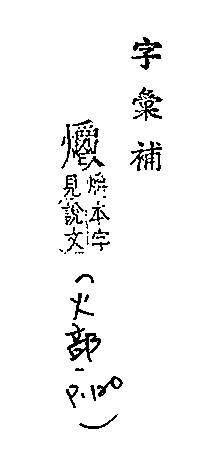 字彙補
本字
見說文
(火部-P.120)